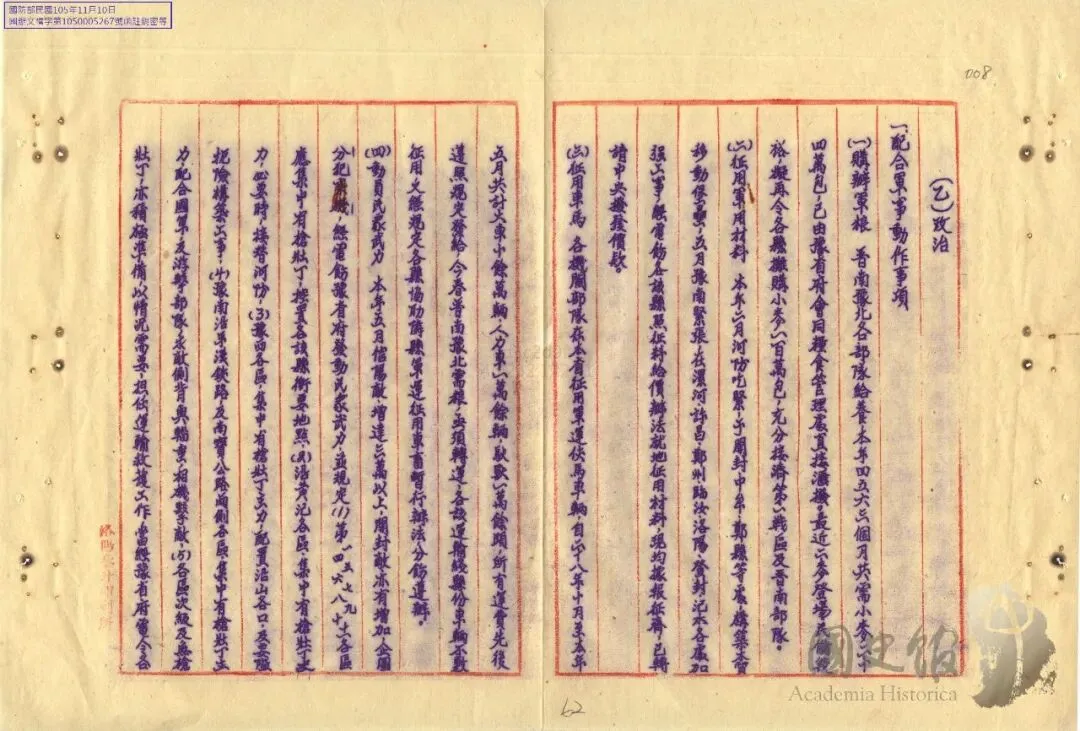 國防部民國105年11月10日
國辦文檔字第1050005267號函註銷密等
008
(乙)政治
一、配合軍事動作事項
(一)購辦軍根 晉南豫北各部隊給養本年四五六三個月共需小麥二十
四萬包,已由豫省府會同糧食管理處直接濟撥。最近二麥登場
裕,擬再令各縣攤購小麥一百萬包,充分接濟第一戰區及晉南部隊。
(二)征用軍用材料 本年六月河防吃緊,于開封中牟鄭縣等處,構築
移動堡壘,五月豫南緊張,在漯河許昌鄭州臨汝洛陽登封汜水各處加
强工事,經電飭各該縣照征料給價辦法就地征用材料,現均據报征齊,已轉
請中央撥發價款。
(三)征用車馬 各機關部隊在本省征用軍運伕馬車輛,自二十八年十月至本年
五月共計火車十餘萬輛,人力車一萬餘輛,馱獸一萬餘頭,所有運費先後
遵照規定發給,今春晉南豫北需糧,必須轉運,各該運輸綫縣份車輛不敷
征用,又經規定各縣協助隣縣軍運征用車畜暫行辦法分飭遵辦。
(四)動員民眾武力 本年五月信陽敵增達三萬以上,開封敵亦有增加,企圖
分犯,經電飭豫省府發動民眾武力,並規定(1)第一四五七八九十二各區
應集中有槍壯丁,控置各該縣衝要地點,(2)沿黄汜各區,集中有槍壯丁主
力,必要時,接替河防,(3)豫西各區,集中有槍壯丁主力,配置沿山各口,及要隘
扼險構築工事,(4)豫南沿平漢鉄路及南寶公路兩側各區,集中有槍壯丁主
力,配合國軍及游擊部隊,於敵側背與輜重,相機擊敵,(5)各區次級及無槍
壯丁,亦積極準備,以情況需要,担任運輸救護工作,當經豫省府電令各
62
國史館
Academia Historica